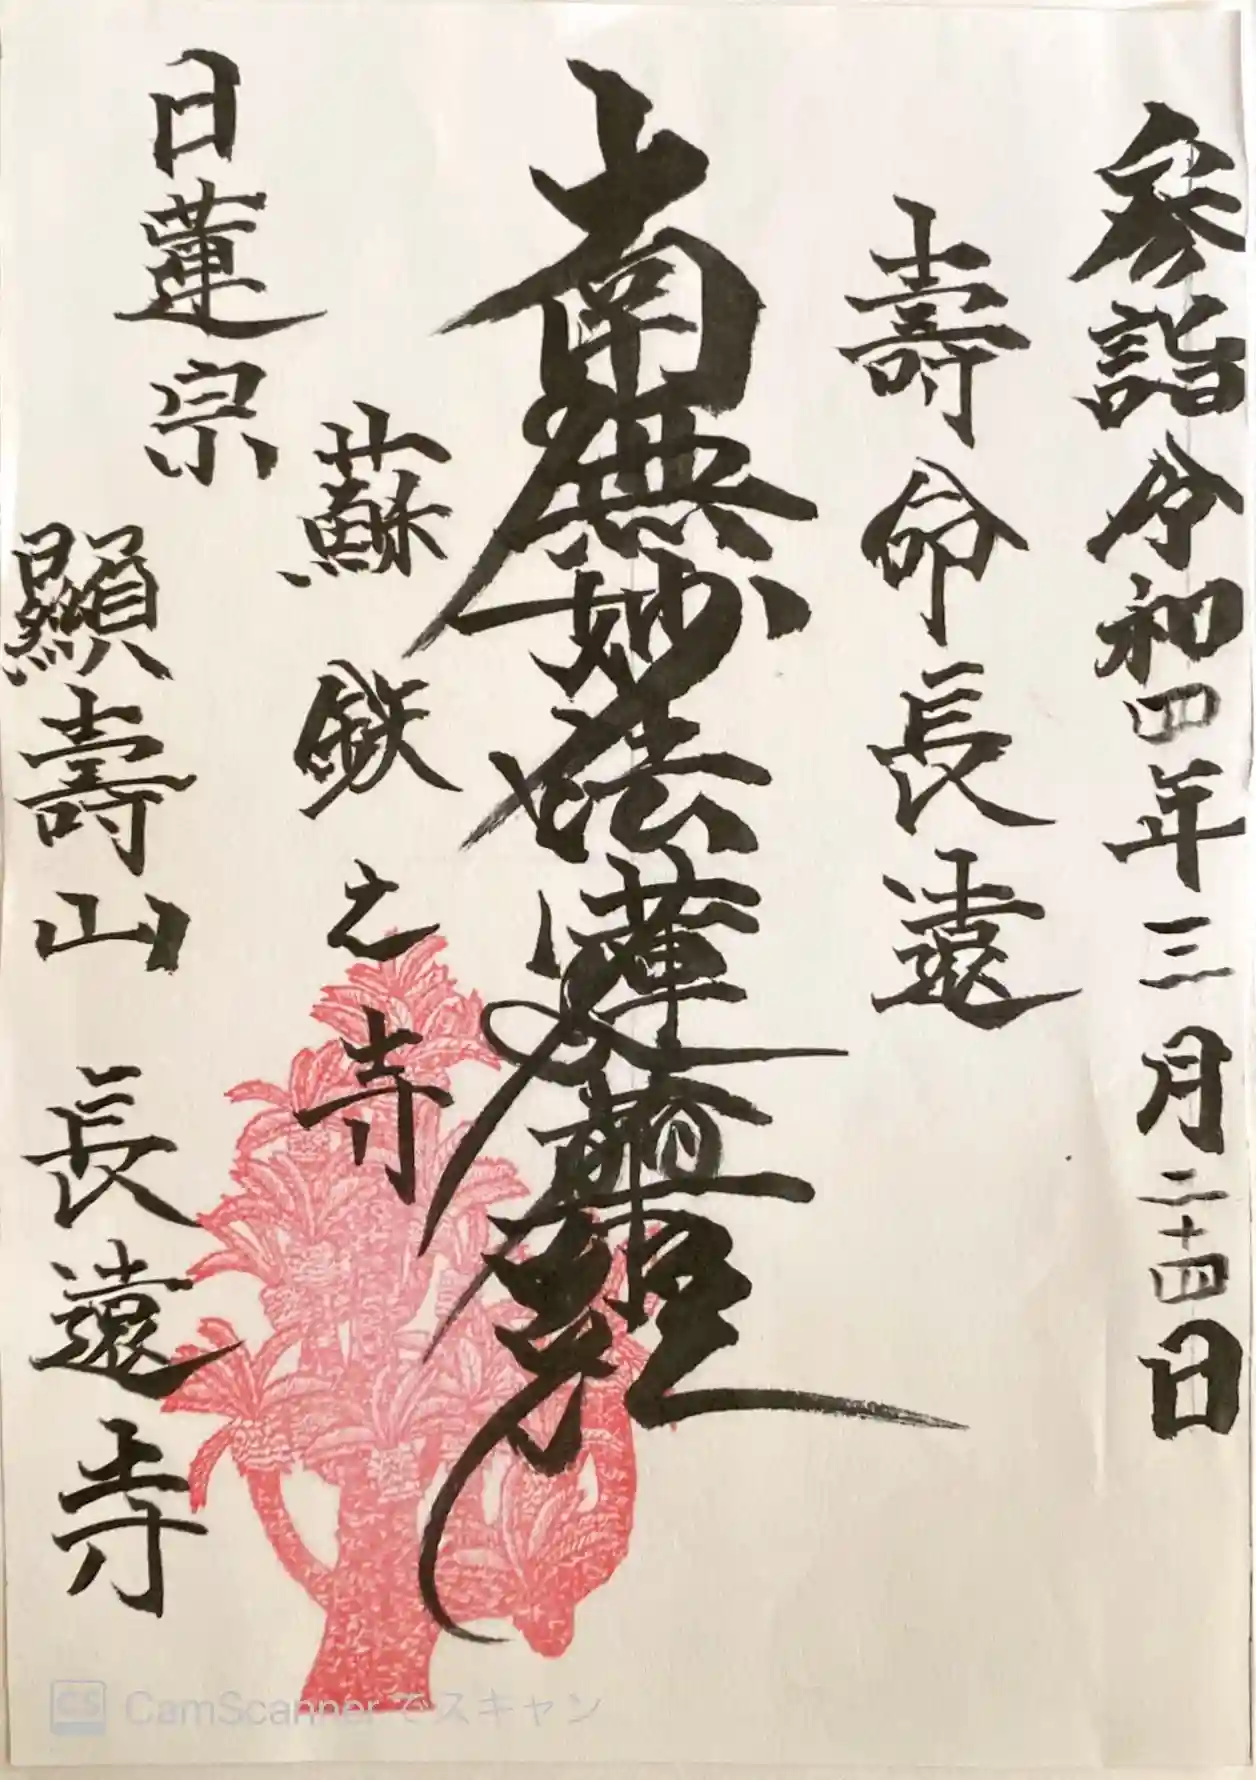 参詣令和四年三月二十四日
壽命長遠
南無妙法蓮華経
蘇鉄之寺
日蓮宗
顯壽山 長遠寺
CS CamScannerでスキャン